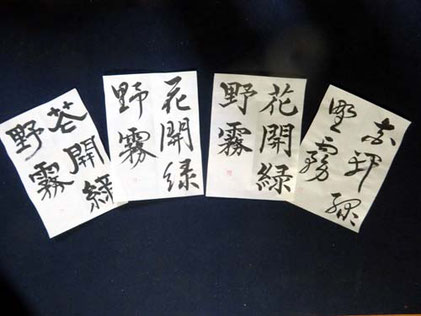 花開緑
野霧
花開緑
野霧
花開緑
野霧
花開緑
野霧